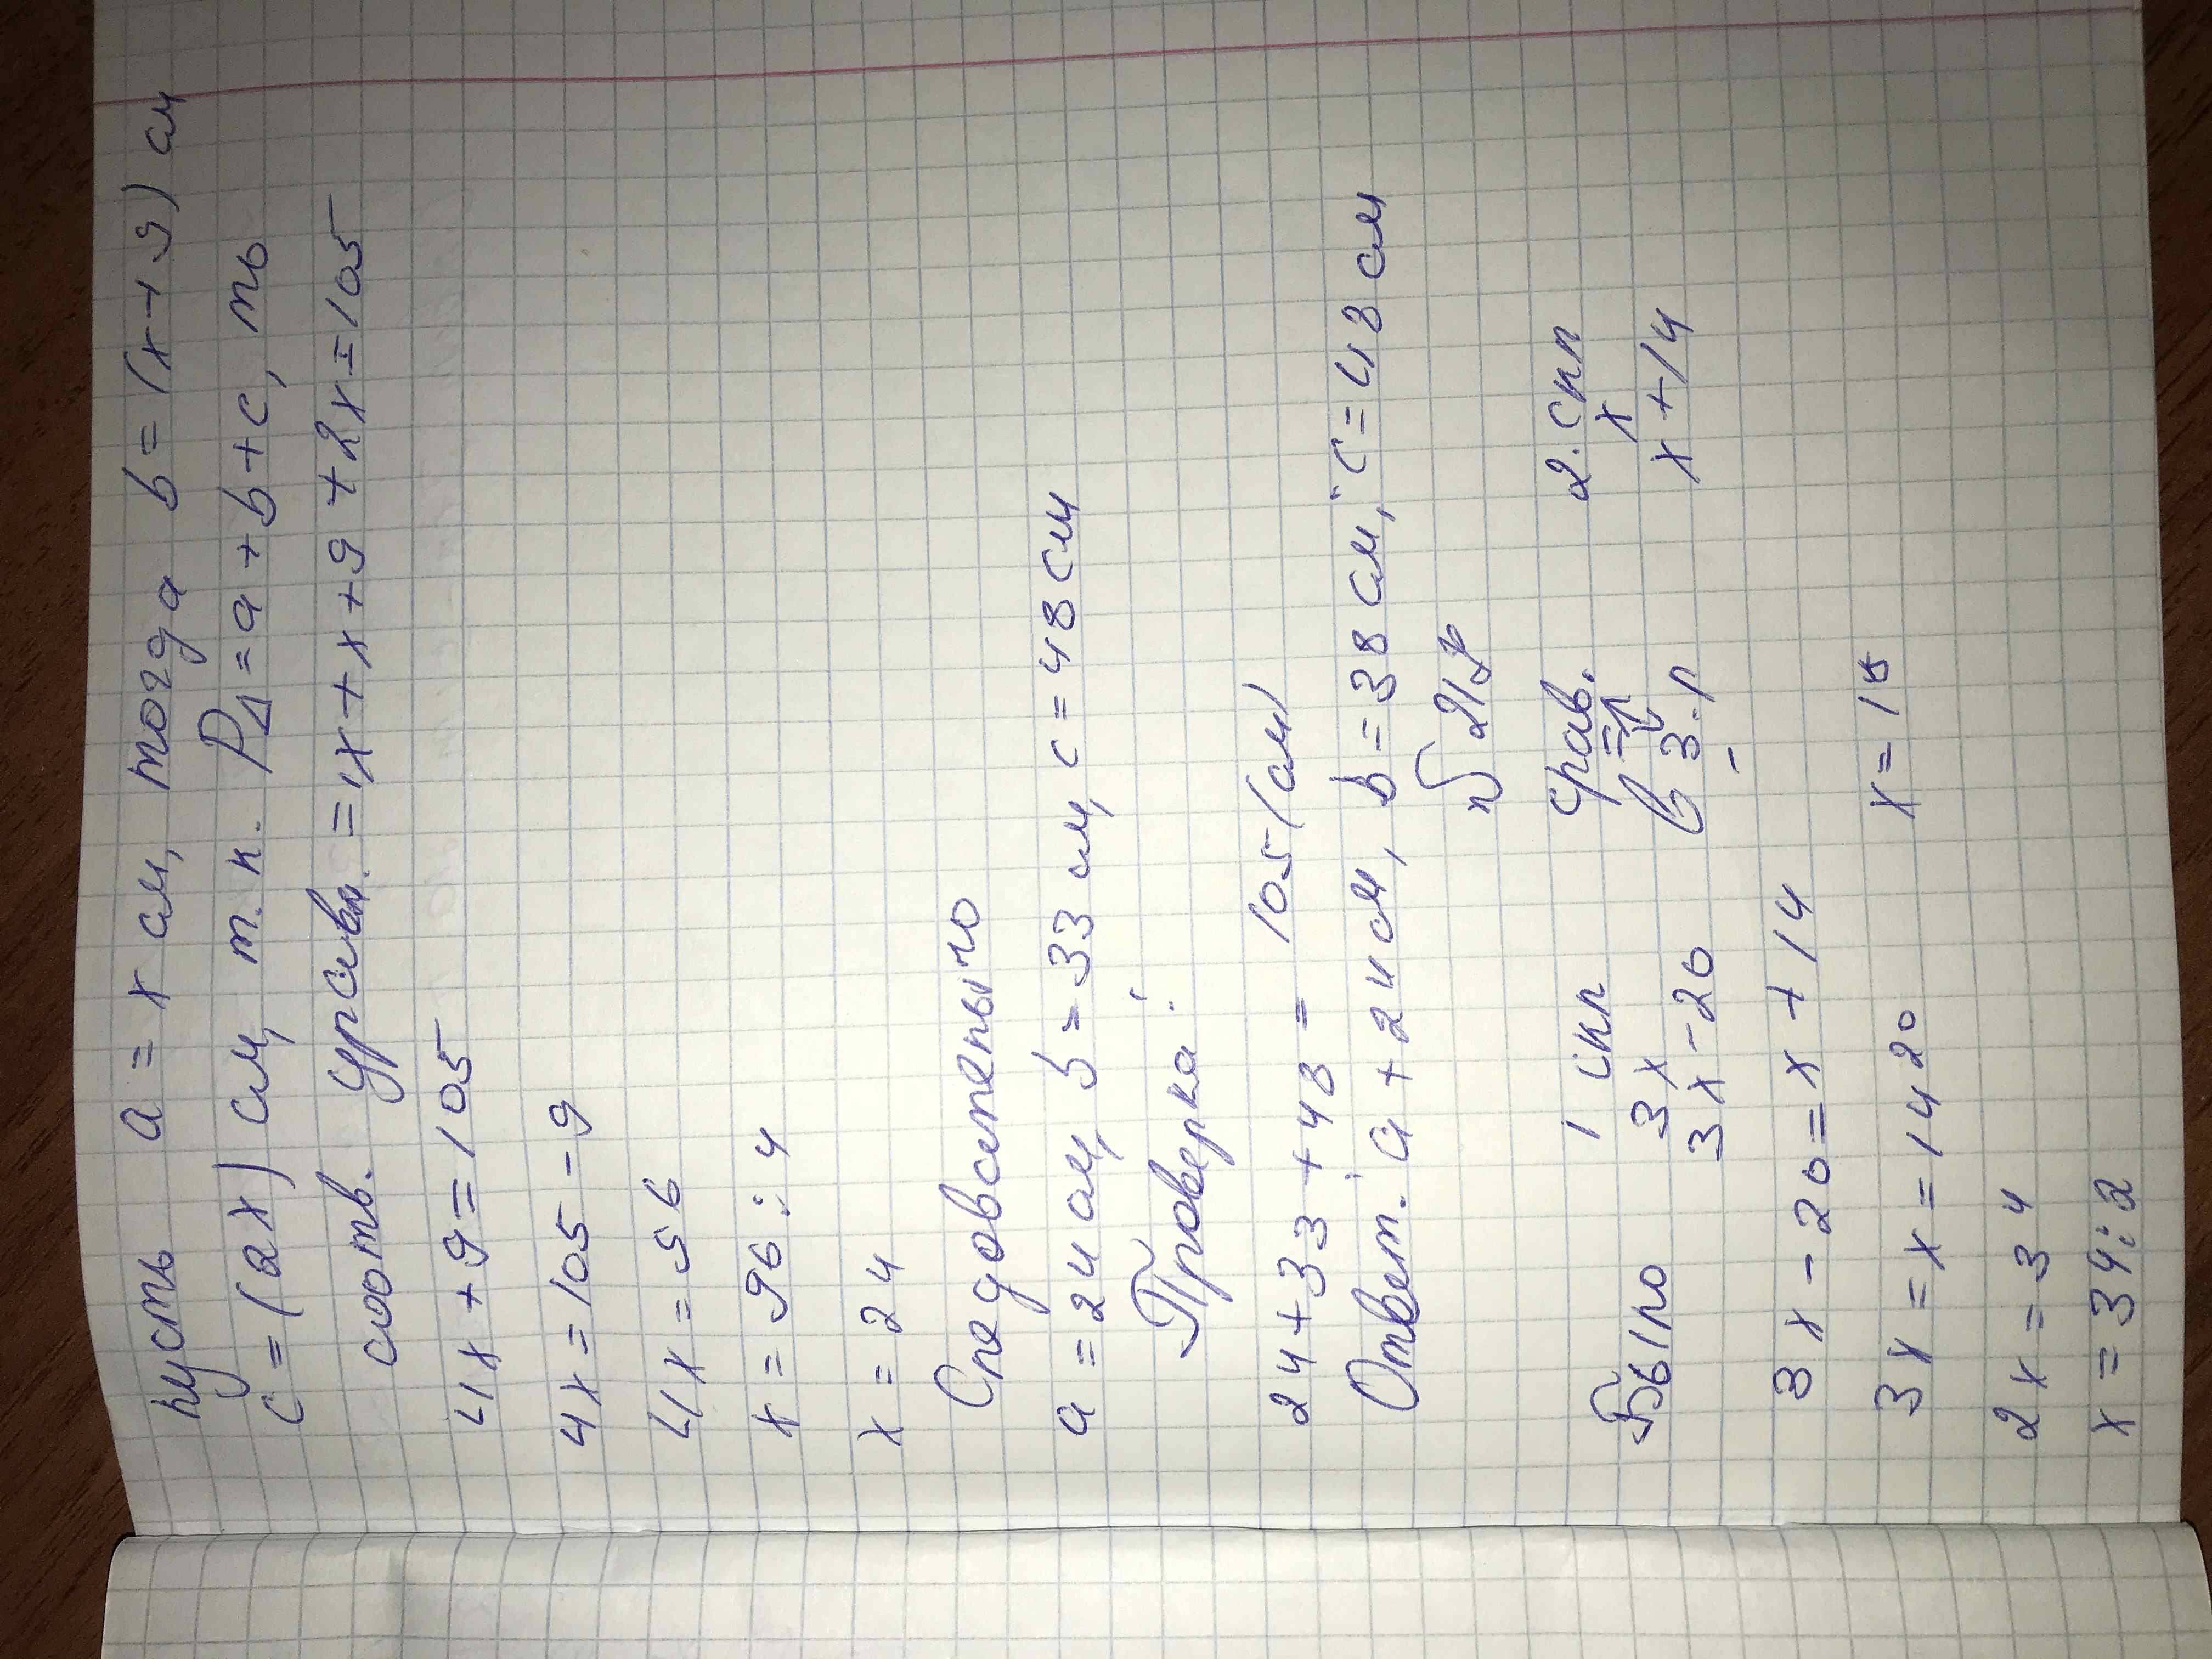 пусть a = x см, тогда b = (x+9) см
c = (2x) см, т. к. P△ = a + b + c, то
соотв. уравн. = x + x + 9 + 2x = 105
4x + 9 = 105
4x = 105 - 9
4x = 96
x = 96 : 4
x = 24
Следовательно
a = 24 см, b = 33 см, c = 48 см
Проверка:
24 + 33 + 48 = 105 (см)
Ответ: a + 24 см, b = 38 см, c = 48 см
1 скл срав. 2. скл
Было 3x x
3x - 20 x + 14
3x - 20 = x + 14
3x = x = 14 20 x = 18
2x = 34
x = 34 : 2